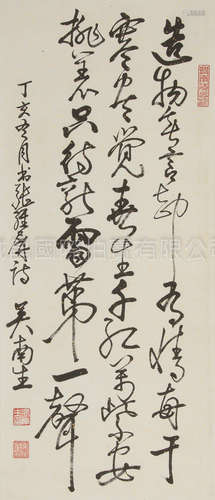 造物無言却有情每于
寒盡覺春生千紅萬紫安
排著只待新雷第一聲
丁亥冬月书張維屏詩
吴南生